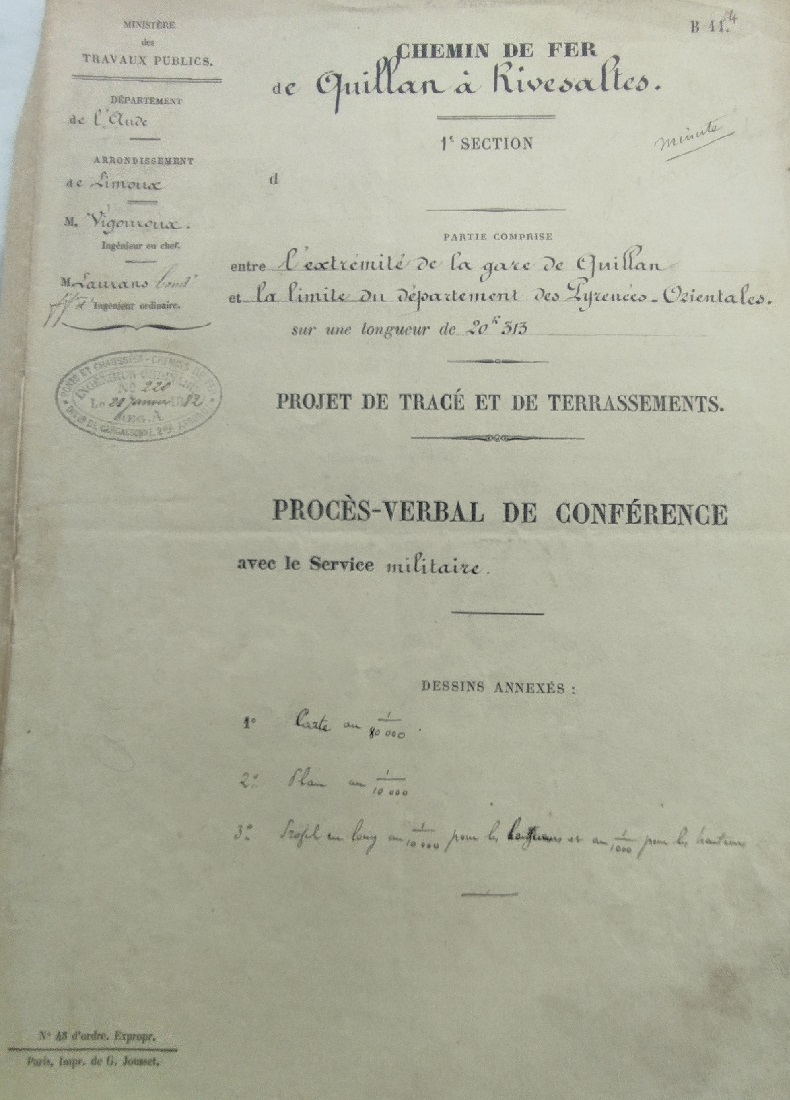 MINISTÈRE
des
TRAVAUX PUBLICS.
DÉPARTEMENT
de l'Aude
ARRONDISSEMENT
de Limoux
M. Vigouroux.
Ingénieur en chef.
M. Laurans Condr
ff d' Ingénieur ordinaire.
PONTS ET CHAUSSÉES - CHEMINS DE FER
INGÉNIEUR ORDINAIRE
No 220
Le 28 Janvier 1882
REG. A
B 11. 4
CHEMIN DE FER
de Quillan à Rivesaltes.
1e SECTION
minute
d
PARTIE COMPRISE
entre l'extrémité de la gare de Quillan
et la limite du département des Pyrénées-Orientales.
sur une longueur de 20k 313
PROJET DE TRACÉ ET DE TERRASSEMENTS.
PROCÈS-VERBAL DE CONFÉRENCE
avec le Service militaire.
DESSINS ANNEXÉS :
1° Carte au 1/80 000.
2° Plan au 1/10 000
3° Profil en long au 1/10 000 pour les longueurs et au 1/1000 pour les hauteurs
N° 48 d'ordre. Expropr.
Paris, Impr. de G. Jousset.